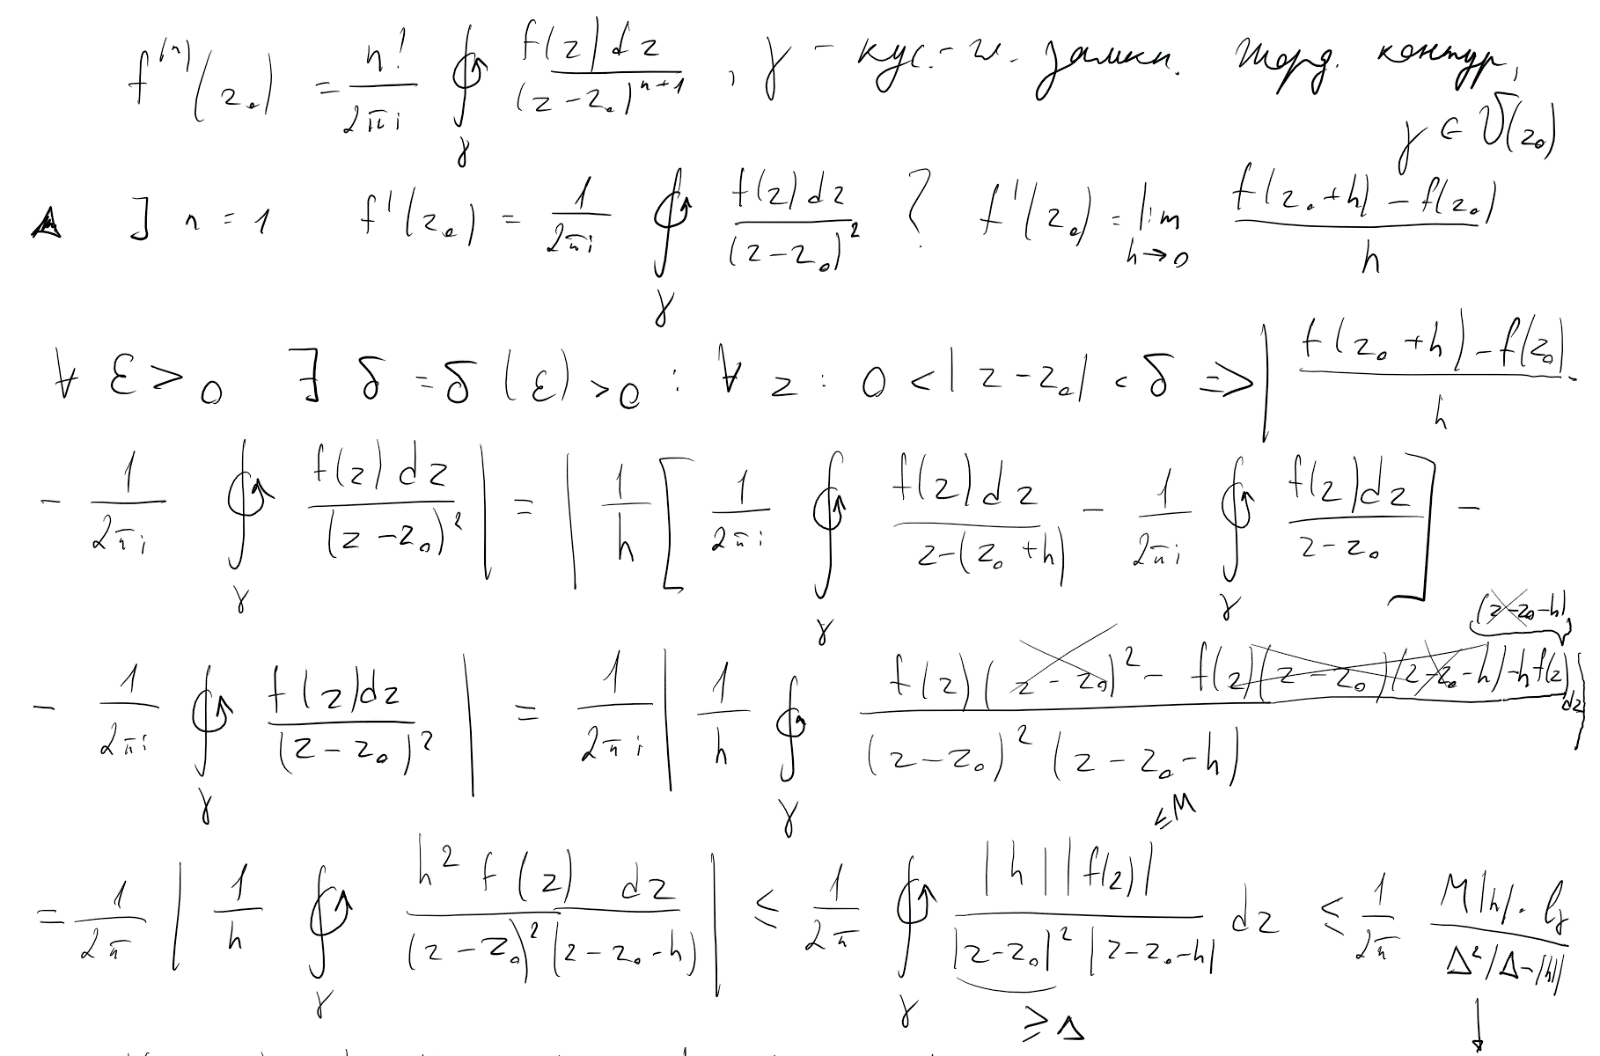 f⁽ⁿ⁾(z₀) = n!/(2πi) ∮_γ f(z)dz/(z-z₀)ⁿ⁺¹, γ - кус.-гл. замкн. жорд. контур,
γ ∈ U(z₀)
▲ ] n = 1 f'(z₀) = 1/(2πi) ∮_γ f(z)dz/(z-z₀)² ? f'(z₀) = lim_{h→0} (f(z₀+h) - f(z₀))/h
∀ ε > 0 ∃ δ = δ(ε) > 0 : ∀ z : 0 < |z-z₀| < δ ⇒ |(f(z₀+h) - f(z₀))/h -
- 1/(2πi) ∮_γ f(z)dz/(z-z₀)²| = |1/h [1/(2πi) ∮_γ f(z)dz/(z-(z₀+h)) - 1/(2πi) ∮_γ f(z)dz/(z-z₀)] -
(z-z₀-h)
- 1/(2πi) ∮_γ f(z)dz/(z-z₀)²| = 1/(2πi) |1/h ∮_γ (f(z)(z-z₀)² - f(z)(z-z₀)(z-z₀-h) - hf(z))/((z-z₀)²(z-z₀-h)) dz|
≤ M
= 1/(2π) |1/h ∮_γ h² f(z) dz/((z-z₀)²(z-z₀-h))| ≤ 1/(2π) ∮_γ |h||f(z)|/(|z-z₀|²|z-z₀-h|) dz ≤ 1/(2π) M|h|·l_γ/(Δ²|Δ-|h||)
≥ Δ ↓